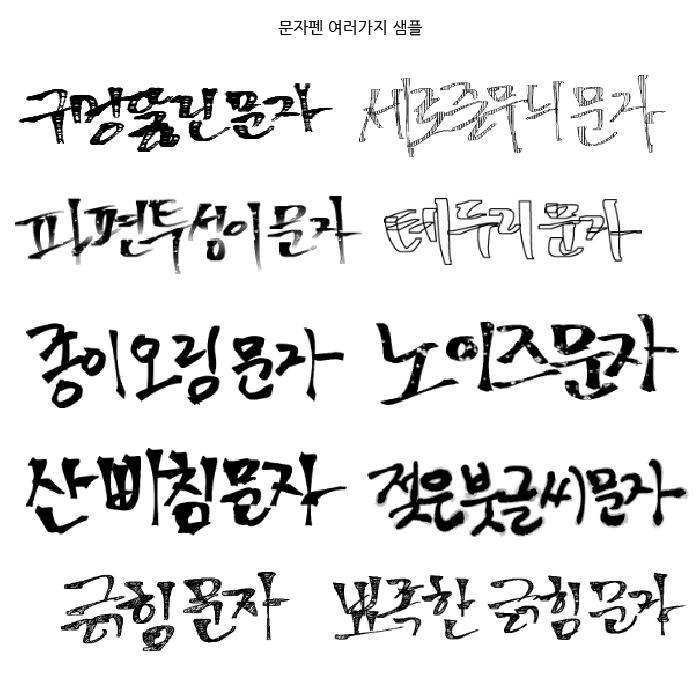 문자펜 여러가지 샘플
구멍뚫린문자 세로줄무늬 문자
파편투성이문자 테두리문자
종이오링문자 노이즈문자
산빠침문자 젖은붓글씨문자
긁힘문자 뾰족한 긁힘문자